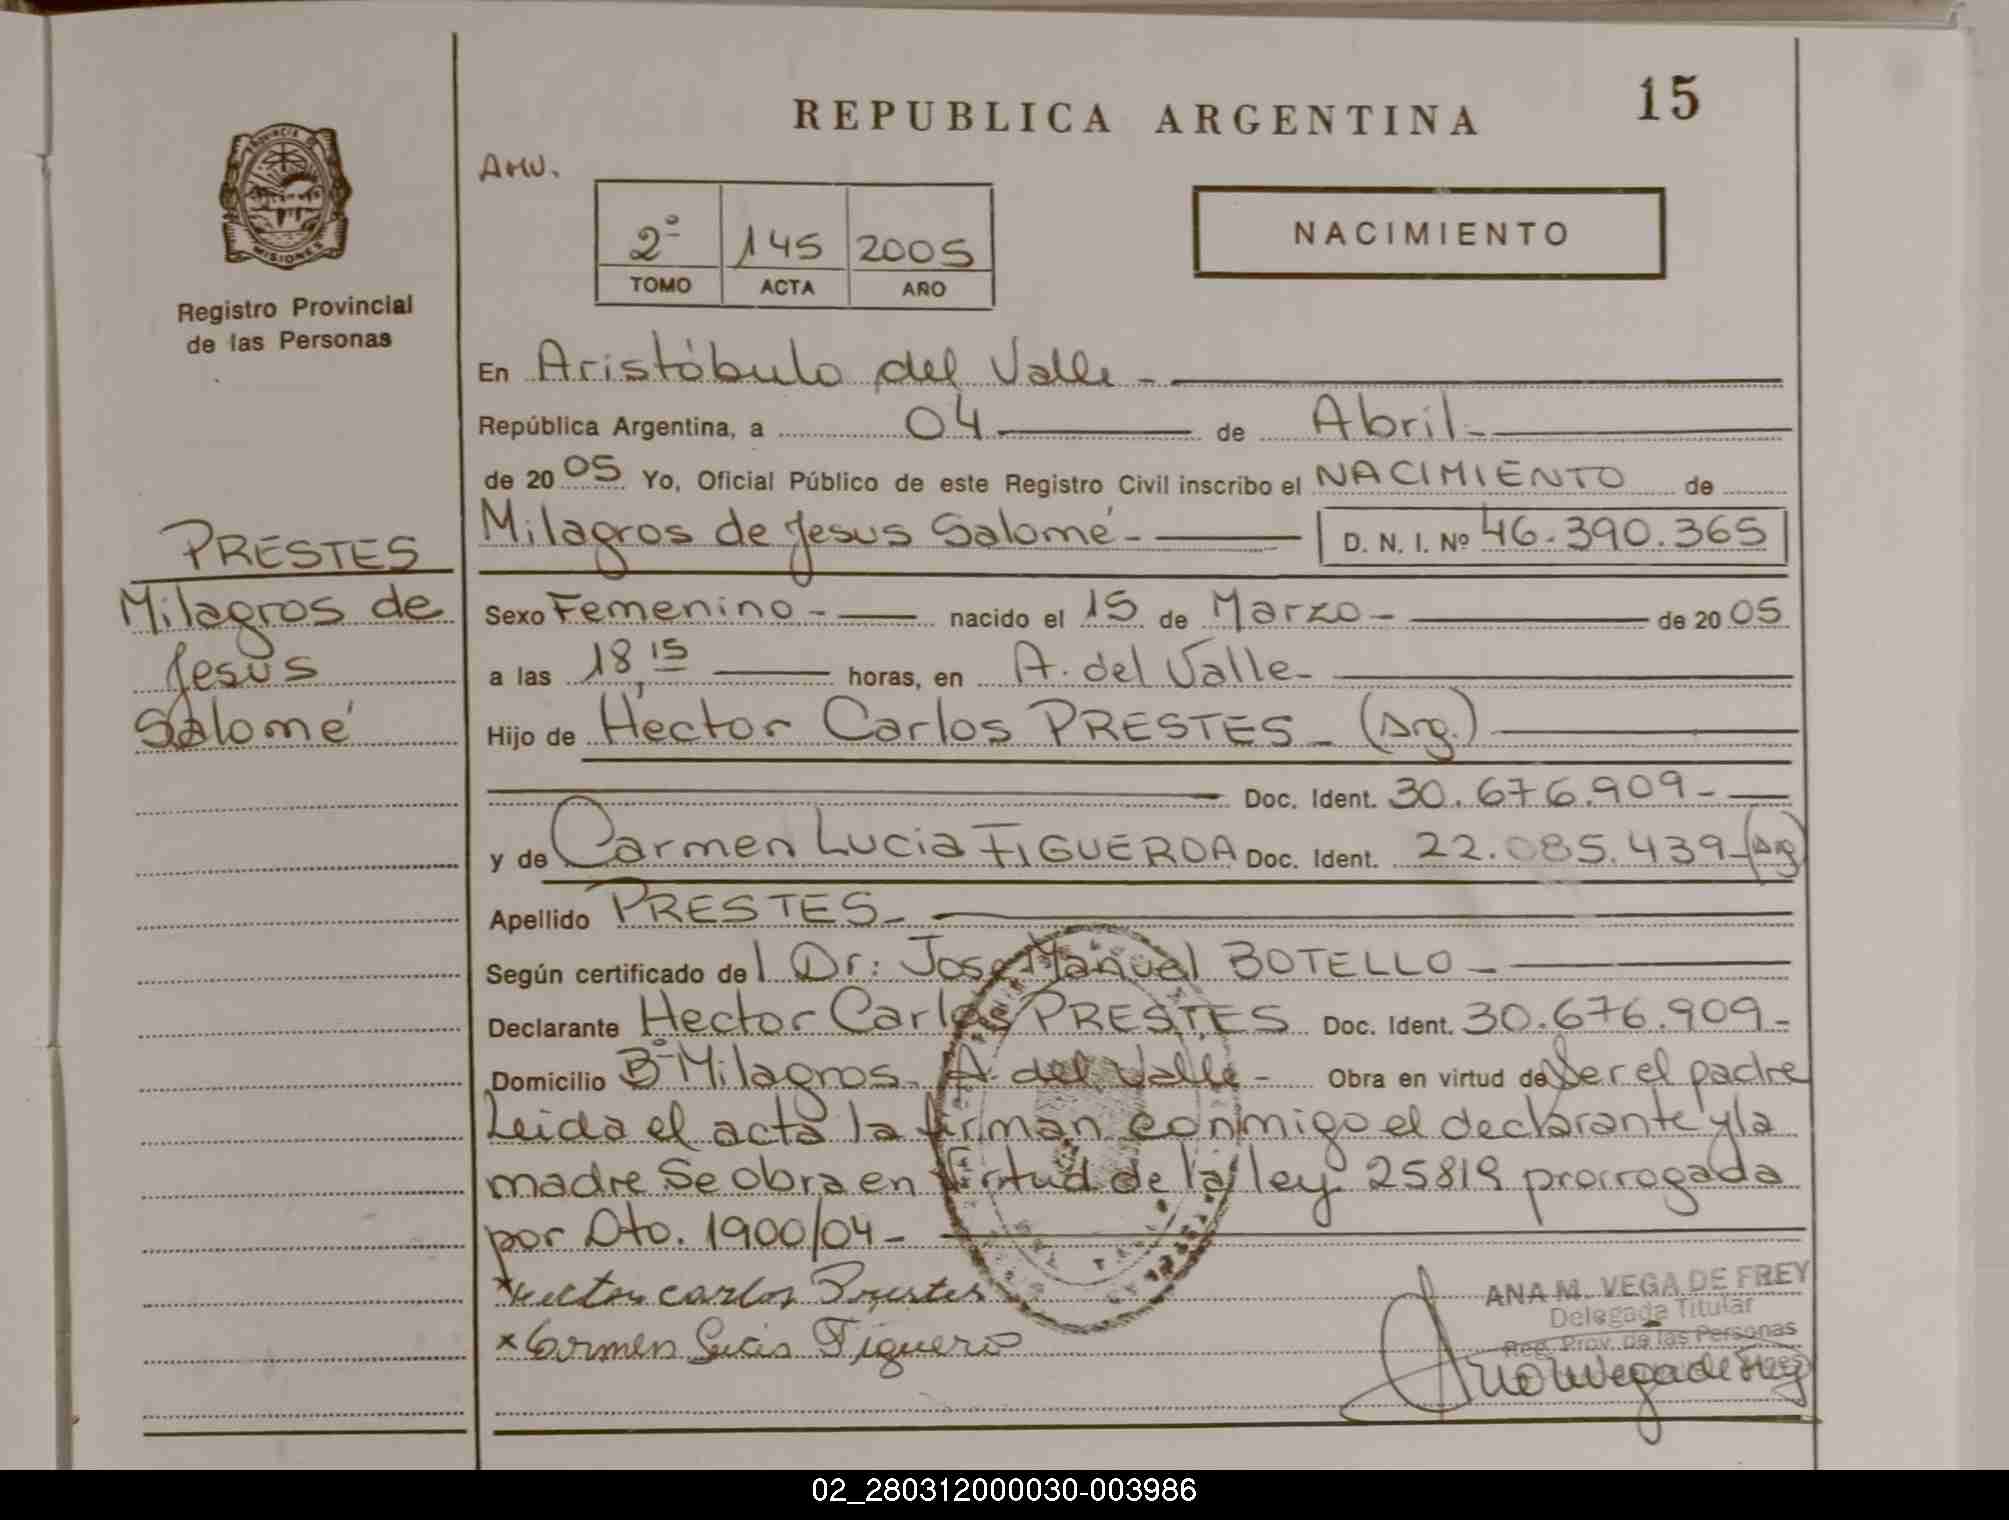 REPUBLICA ARGENTINA
15
PROVINCIA DE
MISIONES
Registro Provincial
de las Personas
NACIMIENTO
2º 145 2005
TOMO ACTA AÑO
En Aristóbulo del Valle -
República Argentina, a 04 de Abril -
de 20 05 Yo, Oficial Público de este Registro Civil inscribo el NACIMIENTO de
Milagros de Jesus Salomé - D. N. I. Nº 46.390.365
PRESTES
Milagros de
Jesus
Salomé
Sexo Femenino - nacido el 15 de Marzo - de 20 05
a las 18,15 horas, en A. del Valle -
Hijo de Hector Carlos PRESTES - (Arg.)
Doc. Ident. 30.676.909 -
y de Carmen Lucia FIGUEROA Doc. Ident. 22.085.439 - (Arg)
Apellido PRESTES -
Según certificado del Dr: Jose Manuel BOTELLO -
Declarante Hector Carlos PRESTES Doc. Ident. 30.676.909 -
Domicilio Bº Milagros - A. del Valle - Obra en virtud de Ser el padre
Leida el acta la firman conmigo el declarante y la
madre Se obra en virtud de la ley 25819 prorrogada
por Dto. 1900/04 -
x Hector carlos Prestes
x Carmen Lucia Figueroa
ANA M. VEGA DE FREY
Delegada Titular
Reg. Prov. de las Personas
02_280312000030-003986